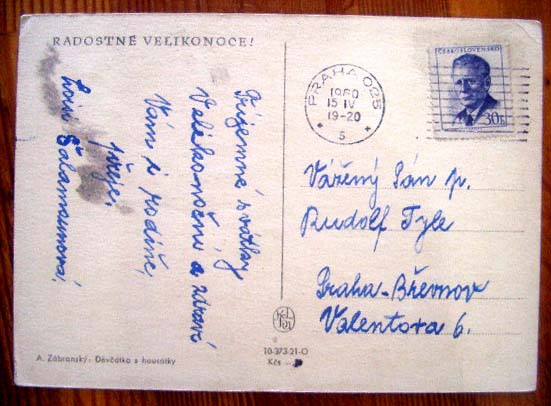 RADOSTNÉ VELIKONOCE!
Příjemné svátky
Velikonoční a zdraví
Vám i rodině,
přeje.
Šalamounová.
A. Zábranský: Děvčátko s housátky
PRAHA 025
1980
15 IV
19-20
5
ČESKOSLOVENSKO
30h
Vážěný Pán p.
Rudolf Tyle
Praha-Břevnov
Valentova 6.
10-373-21-O
Kčs